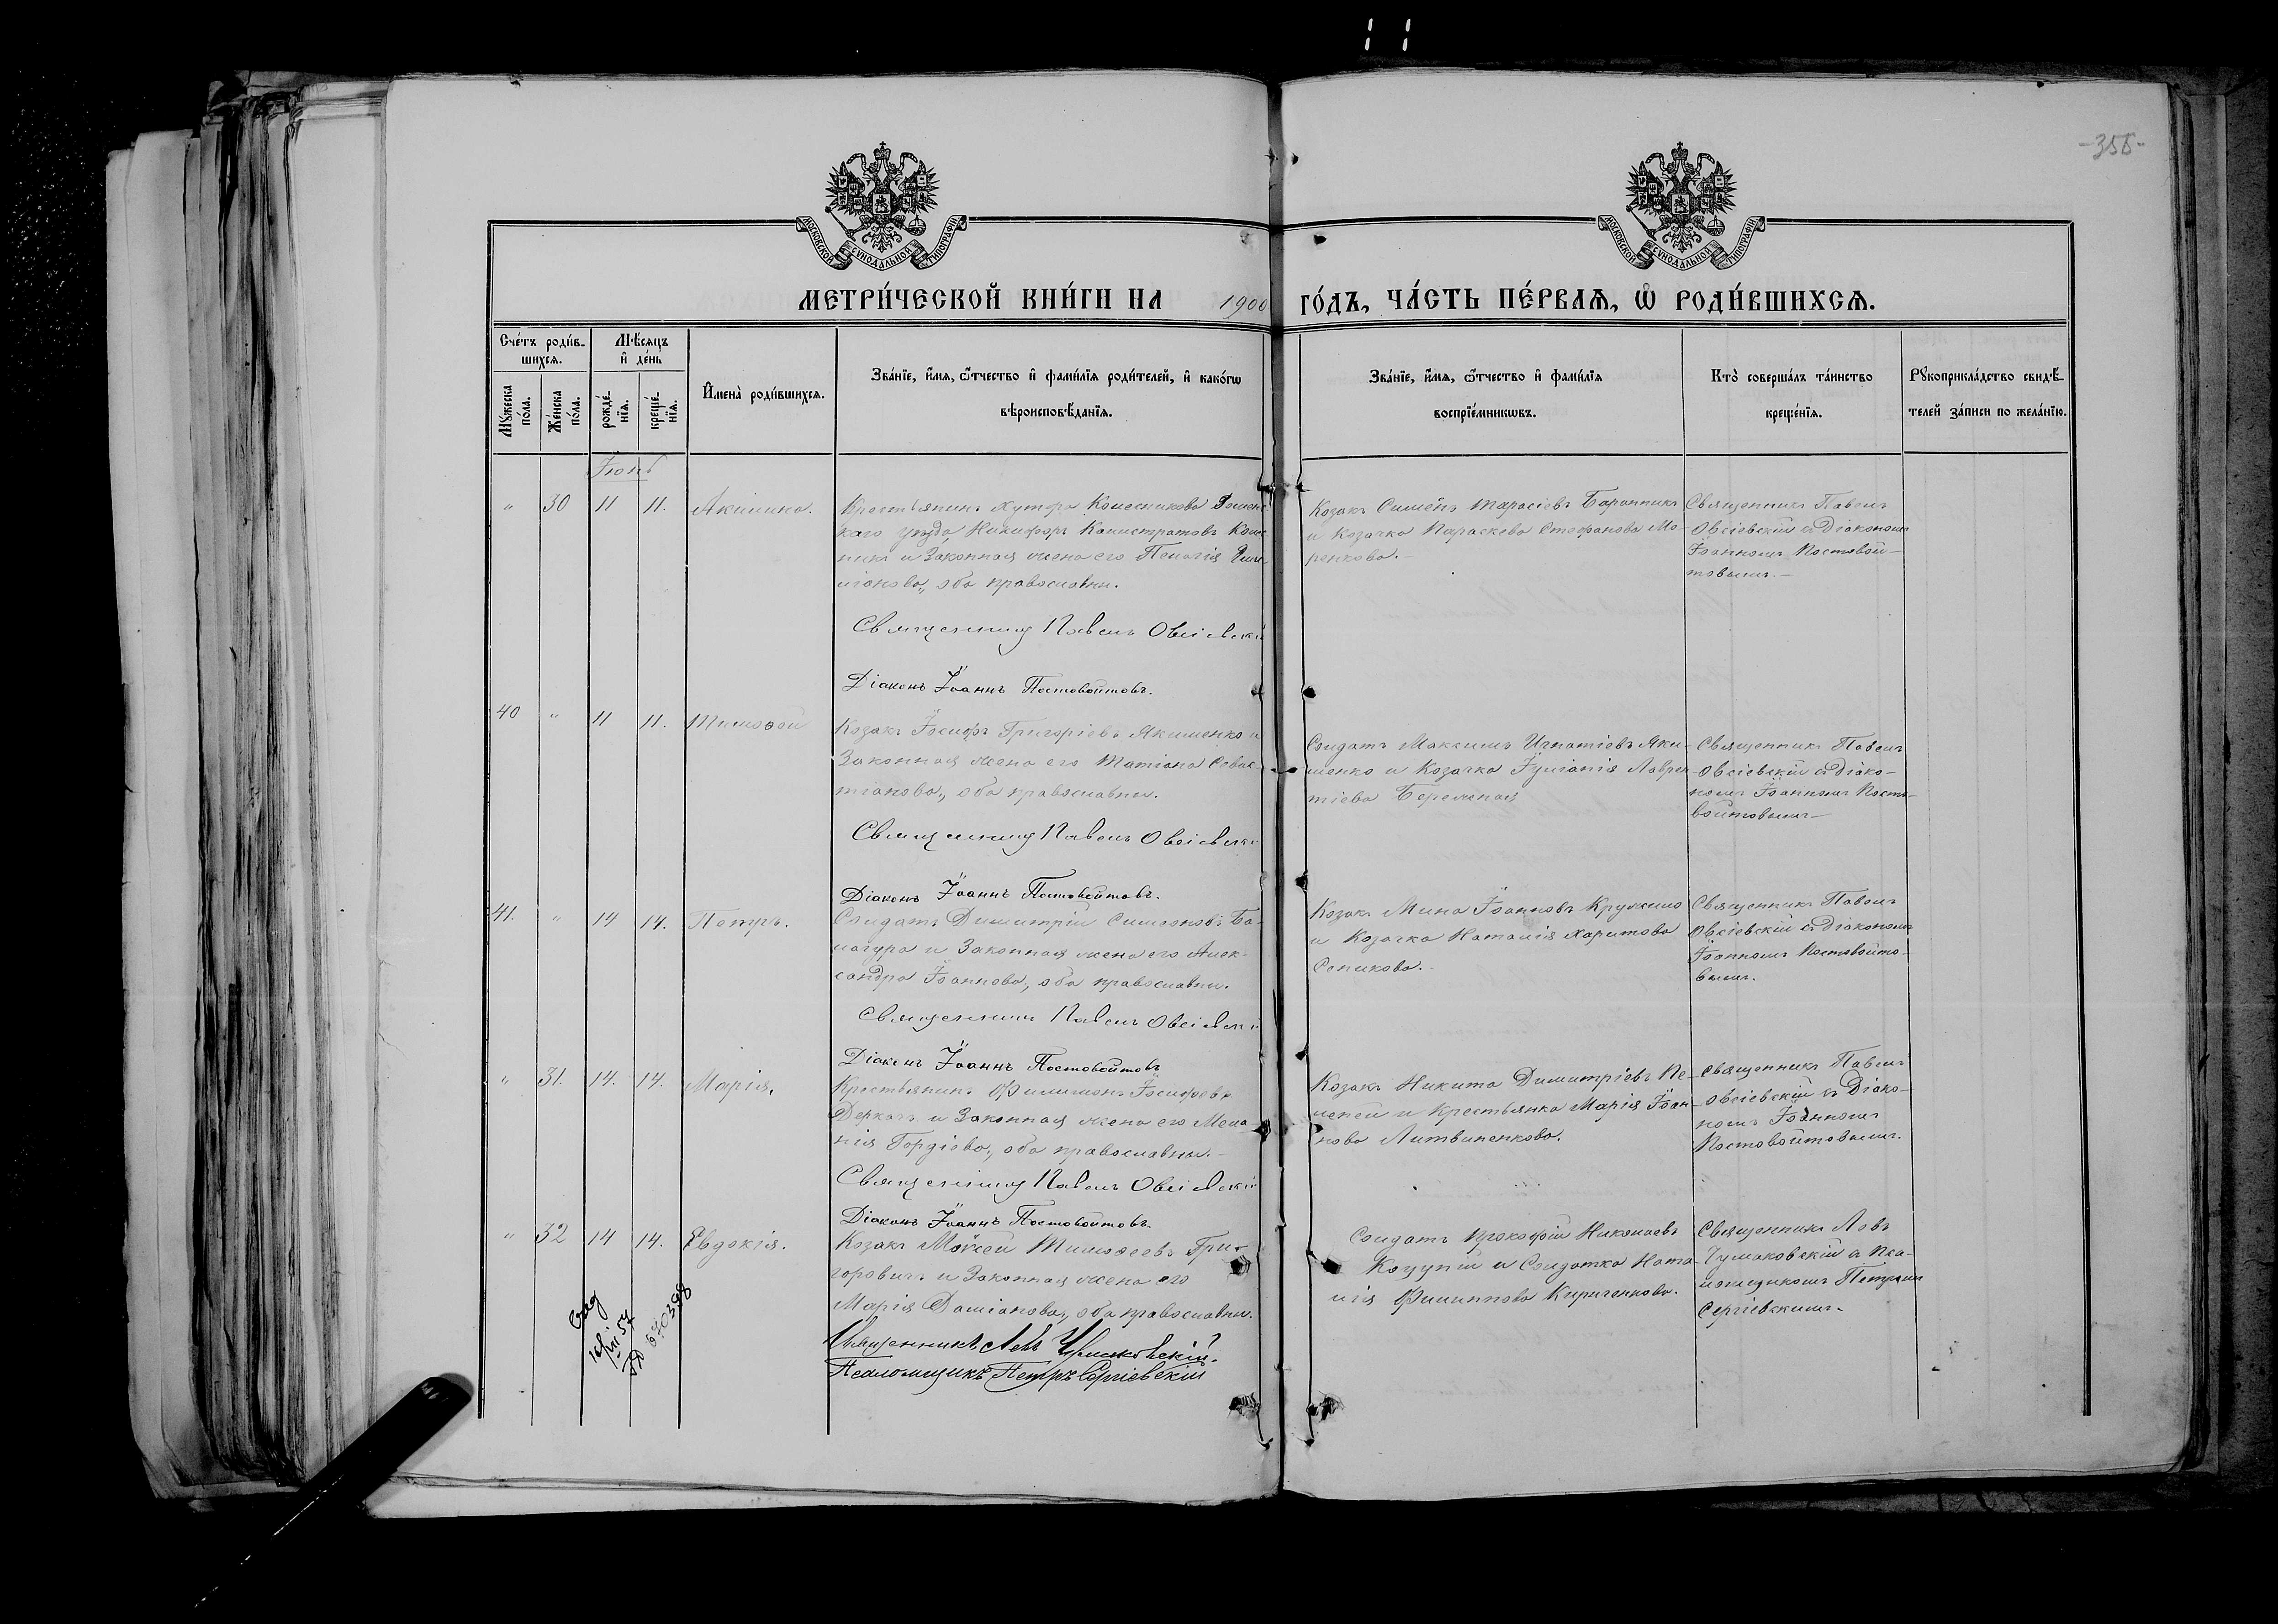 -355-
МОСКОВСКОЙ СѴНОДАЛЬНОЙ ТИПОГРАФІИ
МОСКОВСКОЙ СѴНОДАЛЬНОЙ ТИПОГРАФІИ
МЕТРИ́ЧЕСКОЙ КНИ́ГИ НА 1900 ГО́ДЪ, ЧА́СТЬ ПЕ́РВАѦ, Ѡ РОДИ́ВШИХСѦ.
Сче́тъ роди́в-
шихсѧ.
Мѣ́сѧцъ
и҆ де́нь
Мꙋжеска
по́ла.
Же́нска
по́ла.
рожде́-
нїѧ.
креще́-
нїѧ.
И҆мена̀ роди́вшихсѧ.
Зва́нїе, и҆́мѧ, ѻ҆́тчество и҆ фами́лїѧ роди́телей, и҆ како́гѡ
вѣроисповѣ́данїѧ.
Зва́нїе, и҆́мѧ, ѻ҆́тчество и҆ фами́лїѧ
воспрїе́мникѡвъ.
Кто̀ соверша́лъ та́инство
креще́нїѧ.
Рꙋкоприкла́дство свидѣ́-
телей за́писи по жела́нїю.
Іюнь
" 30 11 11. Акилина.
Крестьянинъ хутора Колесникова
каго уѣзда Никифоръ Каллистратовъ
и законная жена его Пелагія
оба православны.
Священникъ Павелъ Овсіевскій
Діаконъ Іоаннъ Постовойтовъ.
Козакъ Симеонъ Тарасіевъ Баранникъ
и козачка Параскева Стефанова Мо-
ренкова.-
Священникъ Павелъ
Овсіевскій съ Діакономъ
Іоанномъ Постовой-
товымъ.-
40 " 11 11. Тимоѳей
Козакъ Іосифъ Григоріевъ Якименко и
законная жена его Татіана Севас-
тіанова, оба православны.
Священникъ Павелъ Овсіевскій
Діаконъ Іоаннъ Постовойтовъ.
Солдатъ Максимъ Игнатіевъ Яки-
менко и козачка Іуліанія Лаврен-
тіева Бережная
Священникъ Павелъ
Овсіевскій съ Діако-
номъ Іоанномъ Посто-
войтовымъ-
41. " 14 14. Петръ.
Солдатъ Димитрій Симеоновъ Ба-
лагура и законная жена его Алек-
сандра Іоаннова, оба православны.
Священникъ Павелъ Овсіевскій
Діаконъ Іоаннъ Постовойтовъ
Козакъ Мина Іоанновъ
и козачка Наталія Харитова
Сеникова.-
Священникъ Павелъ
Овсіевскій съ Діакономъ
Іоанномъ Постовойто-
вымъ.
" 31. 14. 14. Марія.
Крестьянинъ Филимонъ Іосифовъ
Деркачъ и законная жена его Мела-
нія Гордіева, оба православны.-
Священникъ Павелъ Овсіевскій
Діаконъ Іоаннъ Постовойтовъ
Козакъ Никита Димитріевъ Пе-
и крестьянка Марія Іоан-
нова Литвиненкова.
Священникъ Павелъ
Овсіевскій съ Діако-
номъ Іоанномъ
Постовойтовымъ.
" 32 14 14. Евдокія.
Козакъ Моѵсей Тимоѳеевъ Гри-
горовичъ и законная жена его
Марія Даміанова, оба православны.
Священникъ Левъ Чумаковскій.
Псаломщикъ Петръ Сергіевскій
Солдатъ Прокофій Николаевъ
Коцупій и солдатка Ната-
лія Филиппова Кириченкова.
Священникъ Левъ
Чумаковскій съ Пса-
ломщикомъ Петромъ
Сергіевскимъ.